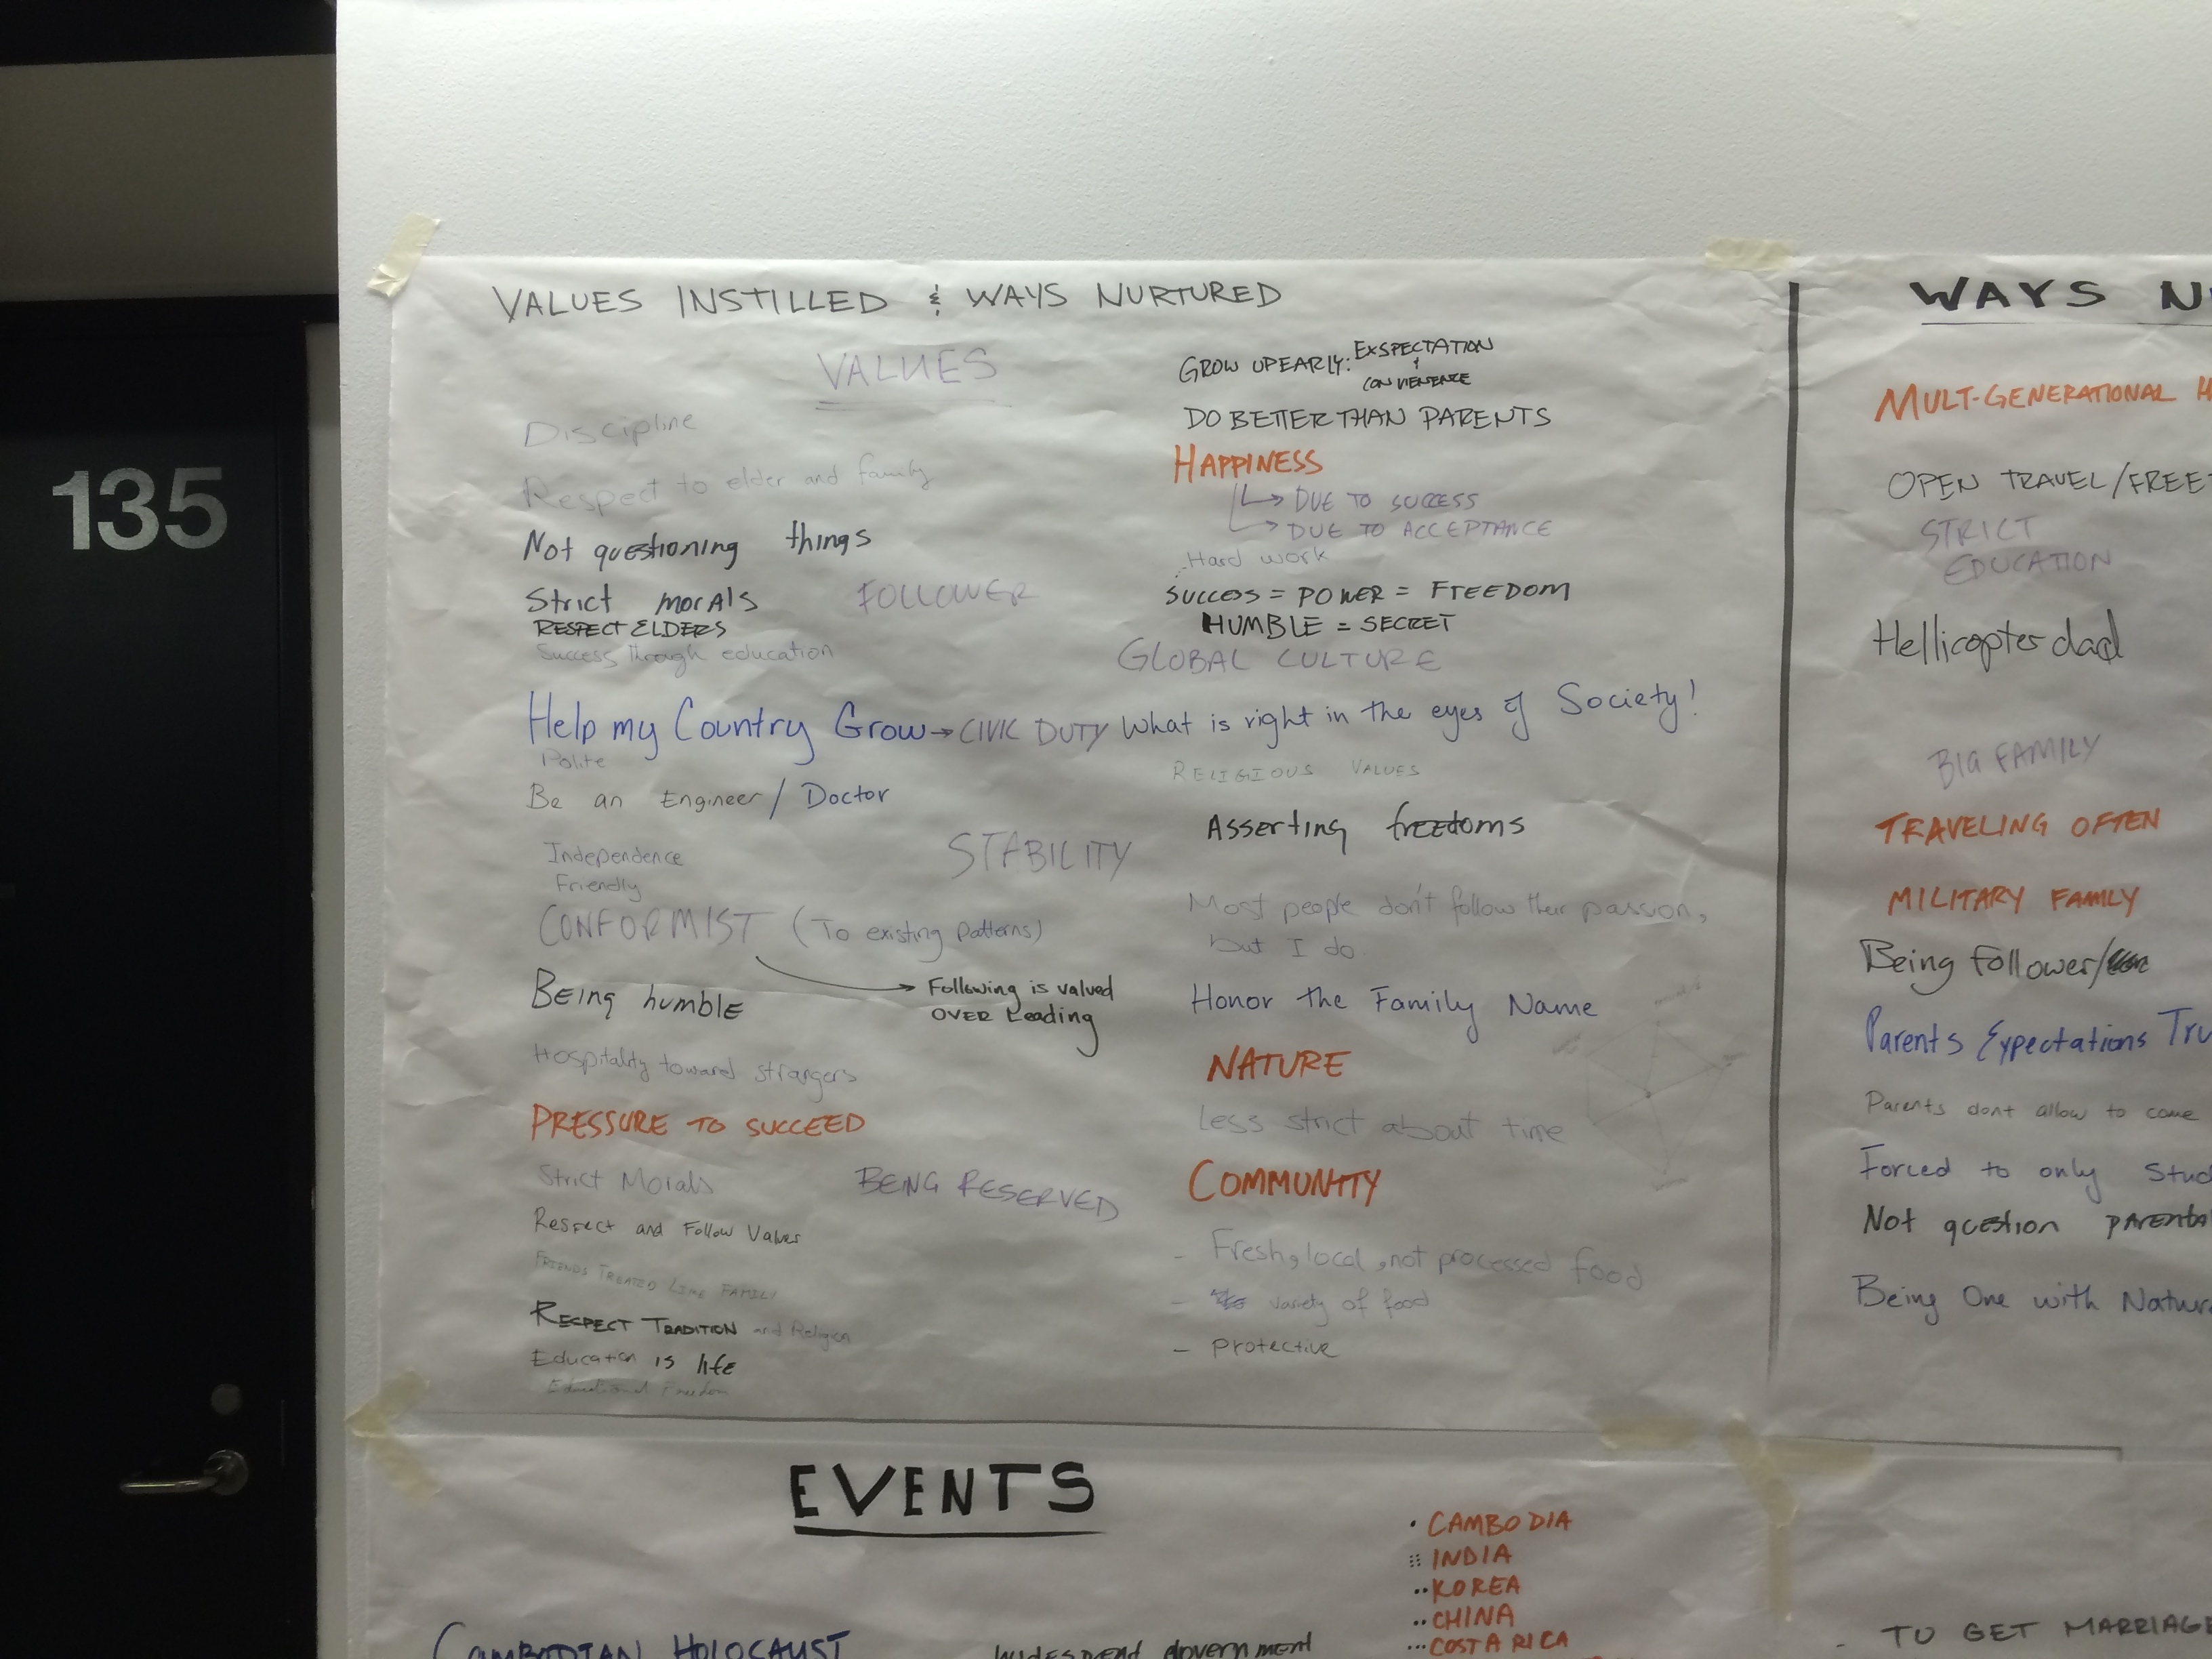 135
VALUES INSTILLED & WAYS NURTURED
VALUES
Discipline
Respect to elder and family
Not questioning things
Strict morals
FOLLOWER
RESPECT ELDERS
Success through education
Help my Country Grow → CIVIC DUTY
Polite
Be an Engineer / Doctor
STABILITY
Independence
Friendly
CONFORMIST (To existing patterns)
Following is valued
OVER Leading
Being humble
Hospitality toward strangers
PRESSURE TO SUCCEED
Strict Morals
BEING RESERVED
Respect and Follow Values
FRIENDS TREATED LIKE FAMILY
RESPECT TRADITION and Religion
Education is life
Educational Freedom
GROW UP EARLY: EXSPECTATION
+
CONVIENENZE
DO BETTER THAN PARENTS
HAPPINESS
→ DUE TO SUCCESS
→ DUE TO ACCEPTANCE
Hard work
SUCCESS = POWER = FREEDOM
HUMBLE = SECRET
GLOBAL CULTURE
What is right in the eyes of Society!
RELIGIOUS VALUES
Asserting freedoms
Most people don't follow their passion,
but I do.
Honor the Family Name
NATURE
Less strict about time
COMMUNITY
- Fresh, local, not processed food
- variety of food
- protective
WAYS
MULT-GENERATIONAL
OPEN TRAVEL/FREE
STRICT
EDUCATION
Hellicopter dad
BIG FAMILY
TRAVELING OFTEN
MILITARY FAMILY
Being follower/
Parents Expectations
Parents dont allow to come
Forced to only
Not question
Being One with
EVENTS
• CAMBODIA
INDIA
•• KOREA
•• CHINA
••• COSTA RICA
CAMBODIAN HOLOCAUST
government
- TO GET MARRIAGE